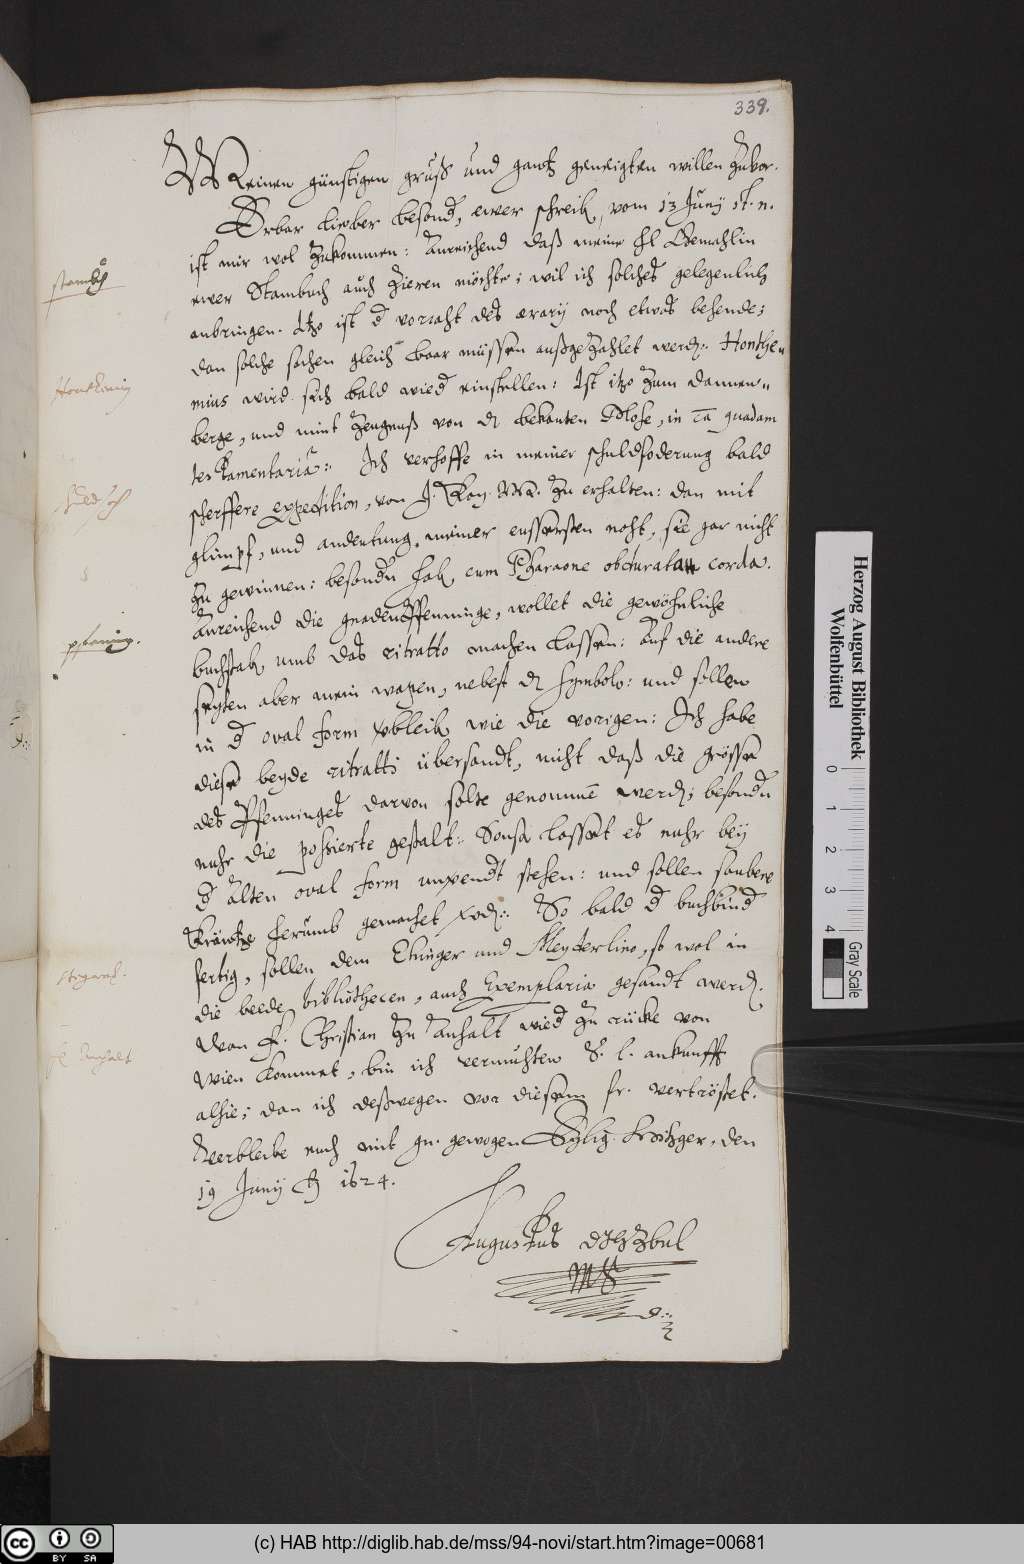 339.
Meinen günstigen gruß und gantz geneigten willen zuvor.
Erbar lieber besond, ewer schreib, vom 13 Juny st. n.
ist mir wol zukommen: Anreichend daß meine hl Gemahlin
ewer Stambuch auch zieren möchte; wil ich solches gelegenlich
anbringen. Itzo ist d vorraht des ærarij noch etwas behende;
dan solche sachen gleich baar müssen außgezahlet werd: Honthe-
mius wird sich bald wied einstellen: Ist itzo zum Dannen-
berge, und nimt zeugnuß von d bekanten Dlohe, in ca quadam
testamentariâ: Ich verhoffe in meiner schuldfoderung bald
scherffere expedition, von J. Kay. Mt. zu erhalten: dan mit
glimpf, und andeutung, meiner eussersten noht, sie gar nicht
zu gewinnen: besondn hab, cum Pharaone obdurata corda.
Anreichend die gnadenpffenninge, wollet die gewöhnliche
buchstab umb das ritratto machen lassen: Auf die andere
seyten aber mein wapen, nebest d symbolo: und sollen
in d oval form verbleib wie die vorigen: Ich habe
diese beyde ritratti übersandt, nicht daß die grösse
des Pfenninges darvon solte genommē werd; besondn
nuhr die possierte gestalt: Sonst lasset es nuhr bey
d alten oval form unverendt stehen: und sollen saubere
Kräntze herumb gemachet werd: So bald d buchbind
fertig, sollen dem Ehinger und Meyderlino, so wol in
die beede bibliothecen, auch Exemplaria gesandt werd.
Wan F. Christian zu Anhalt wied zu rücke von
Wien kommet, bin ich vermuhten S. l. ankunfft
alhie; dan ich deßwegen vor diesem hr. vertröstet.
Verbleibe euch mit gn. gewogen Sylig. Hitzger, den
19 Juny A 1624.
Augustus DJHZBUL
Mp
stambuch
Honthemius
schuldsach
pfening.
F Anhalt
Herzog August Bibliothek
Wolfenbüttel
0 1 2 3 4
Gray Scale
cc BY SA
(c) HAB http://diglib.hab.de/mss/94-novi/start.htm?image=00681